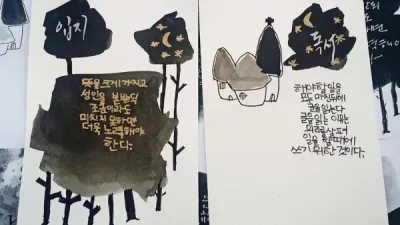 입지
뜻을 크게 가지고
성인을 본받되
조금이라도
미치지 못하면
더욱 노력해야
한다.
독서
해야할 일을
모두 마친뒤에
글을 읽는다
글을 읽는 이유는
살펴
일을 할때에
쓰기 위한 것이다.